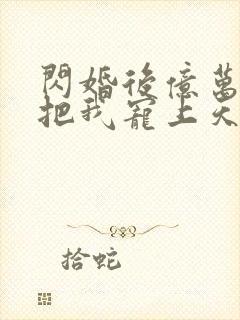 閃婚後億萬
把我寵上天
拾蛇